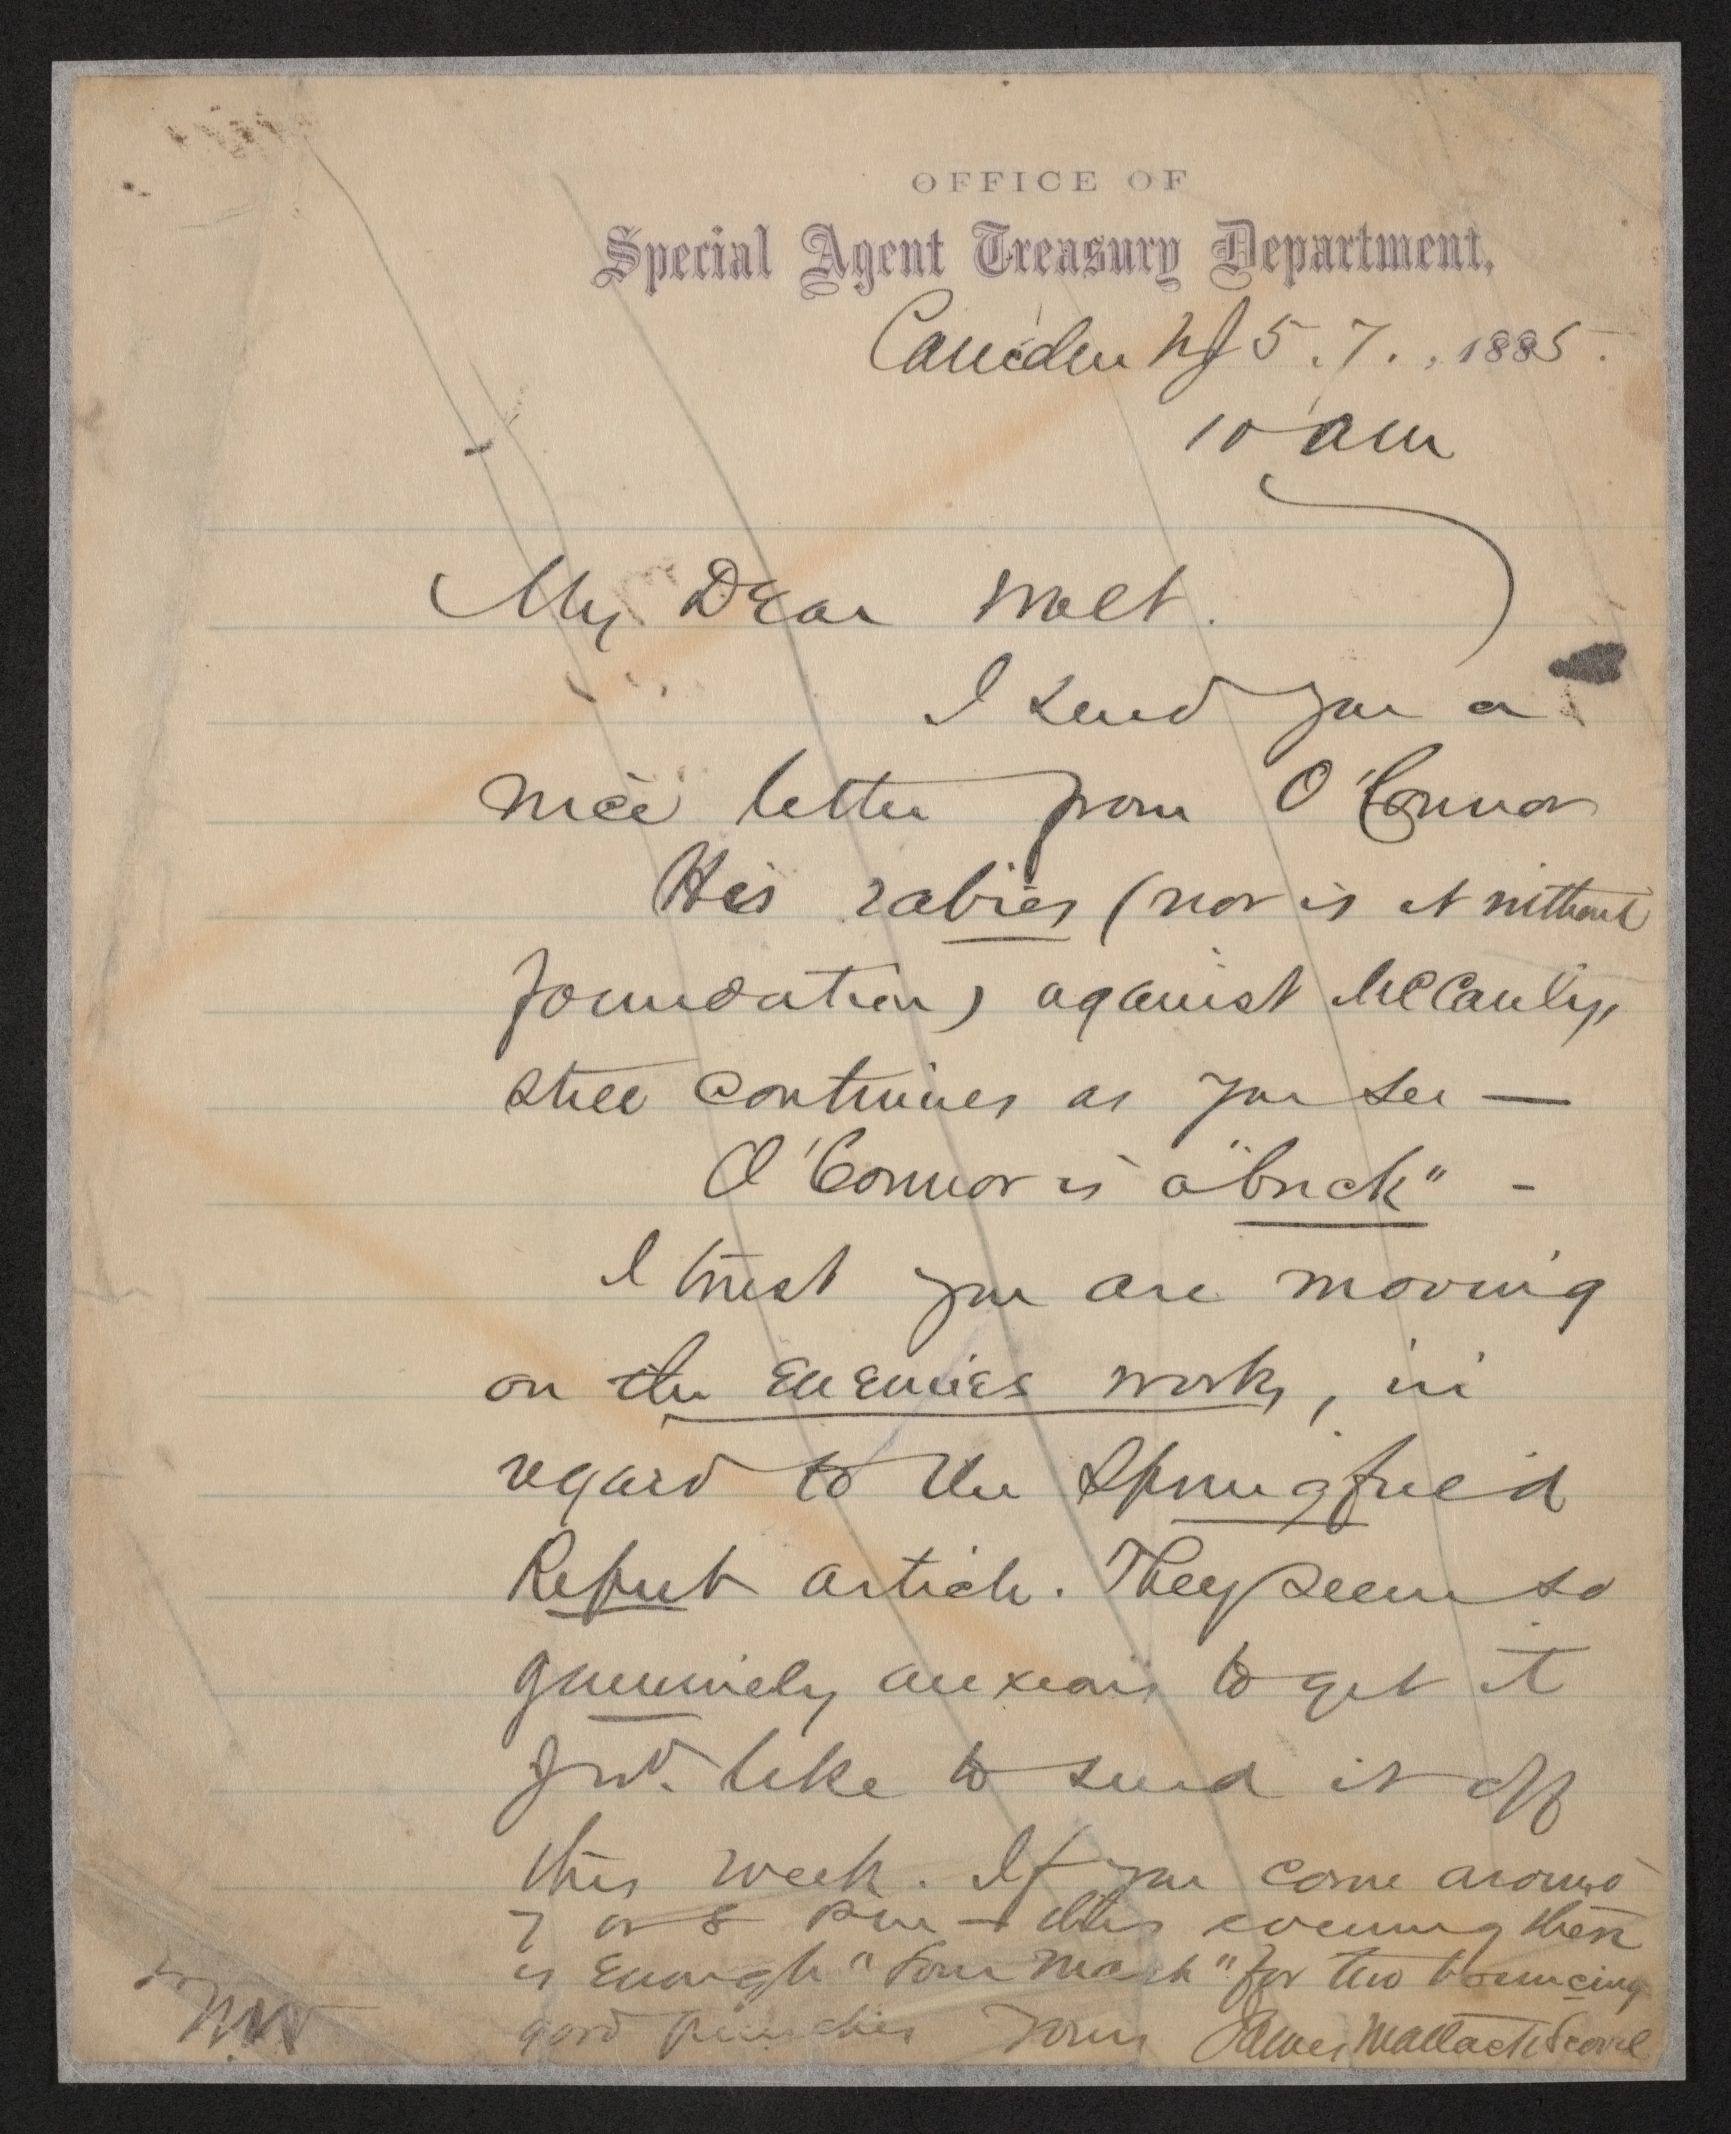 OFFICE OF
Special Agent Treasury Department,
Camden NJ 5.7., 1885.
10 am
My Dear Walt.
I send you a
nice letter from O'Connor
His rabies (nor is it without
foundation) against McCauly,
still continues as you see —
O'Connor is a "brick" -
I trust you are moving
on the enemies works, in
regard to the Springfield
Repub article. They seem so
genuinely anxious to get it
I wd. like to send it off
this week. If you come around
7 or 8 P m — this evening there
is enough "Sour Mash" for two bouncing
good punches Yours James Matlack Scovel